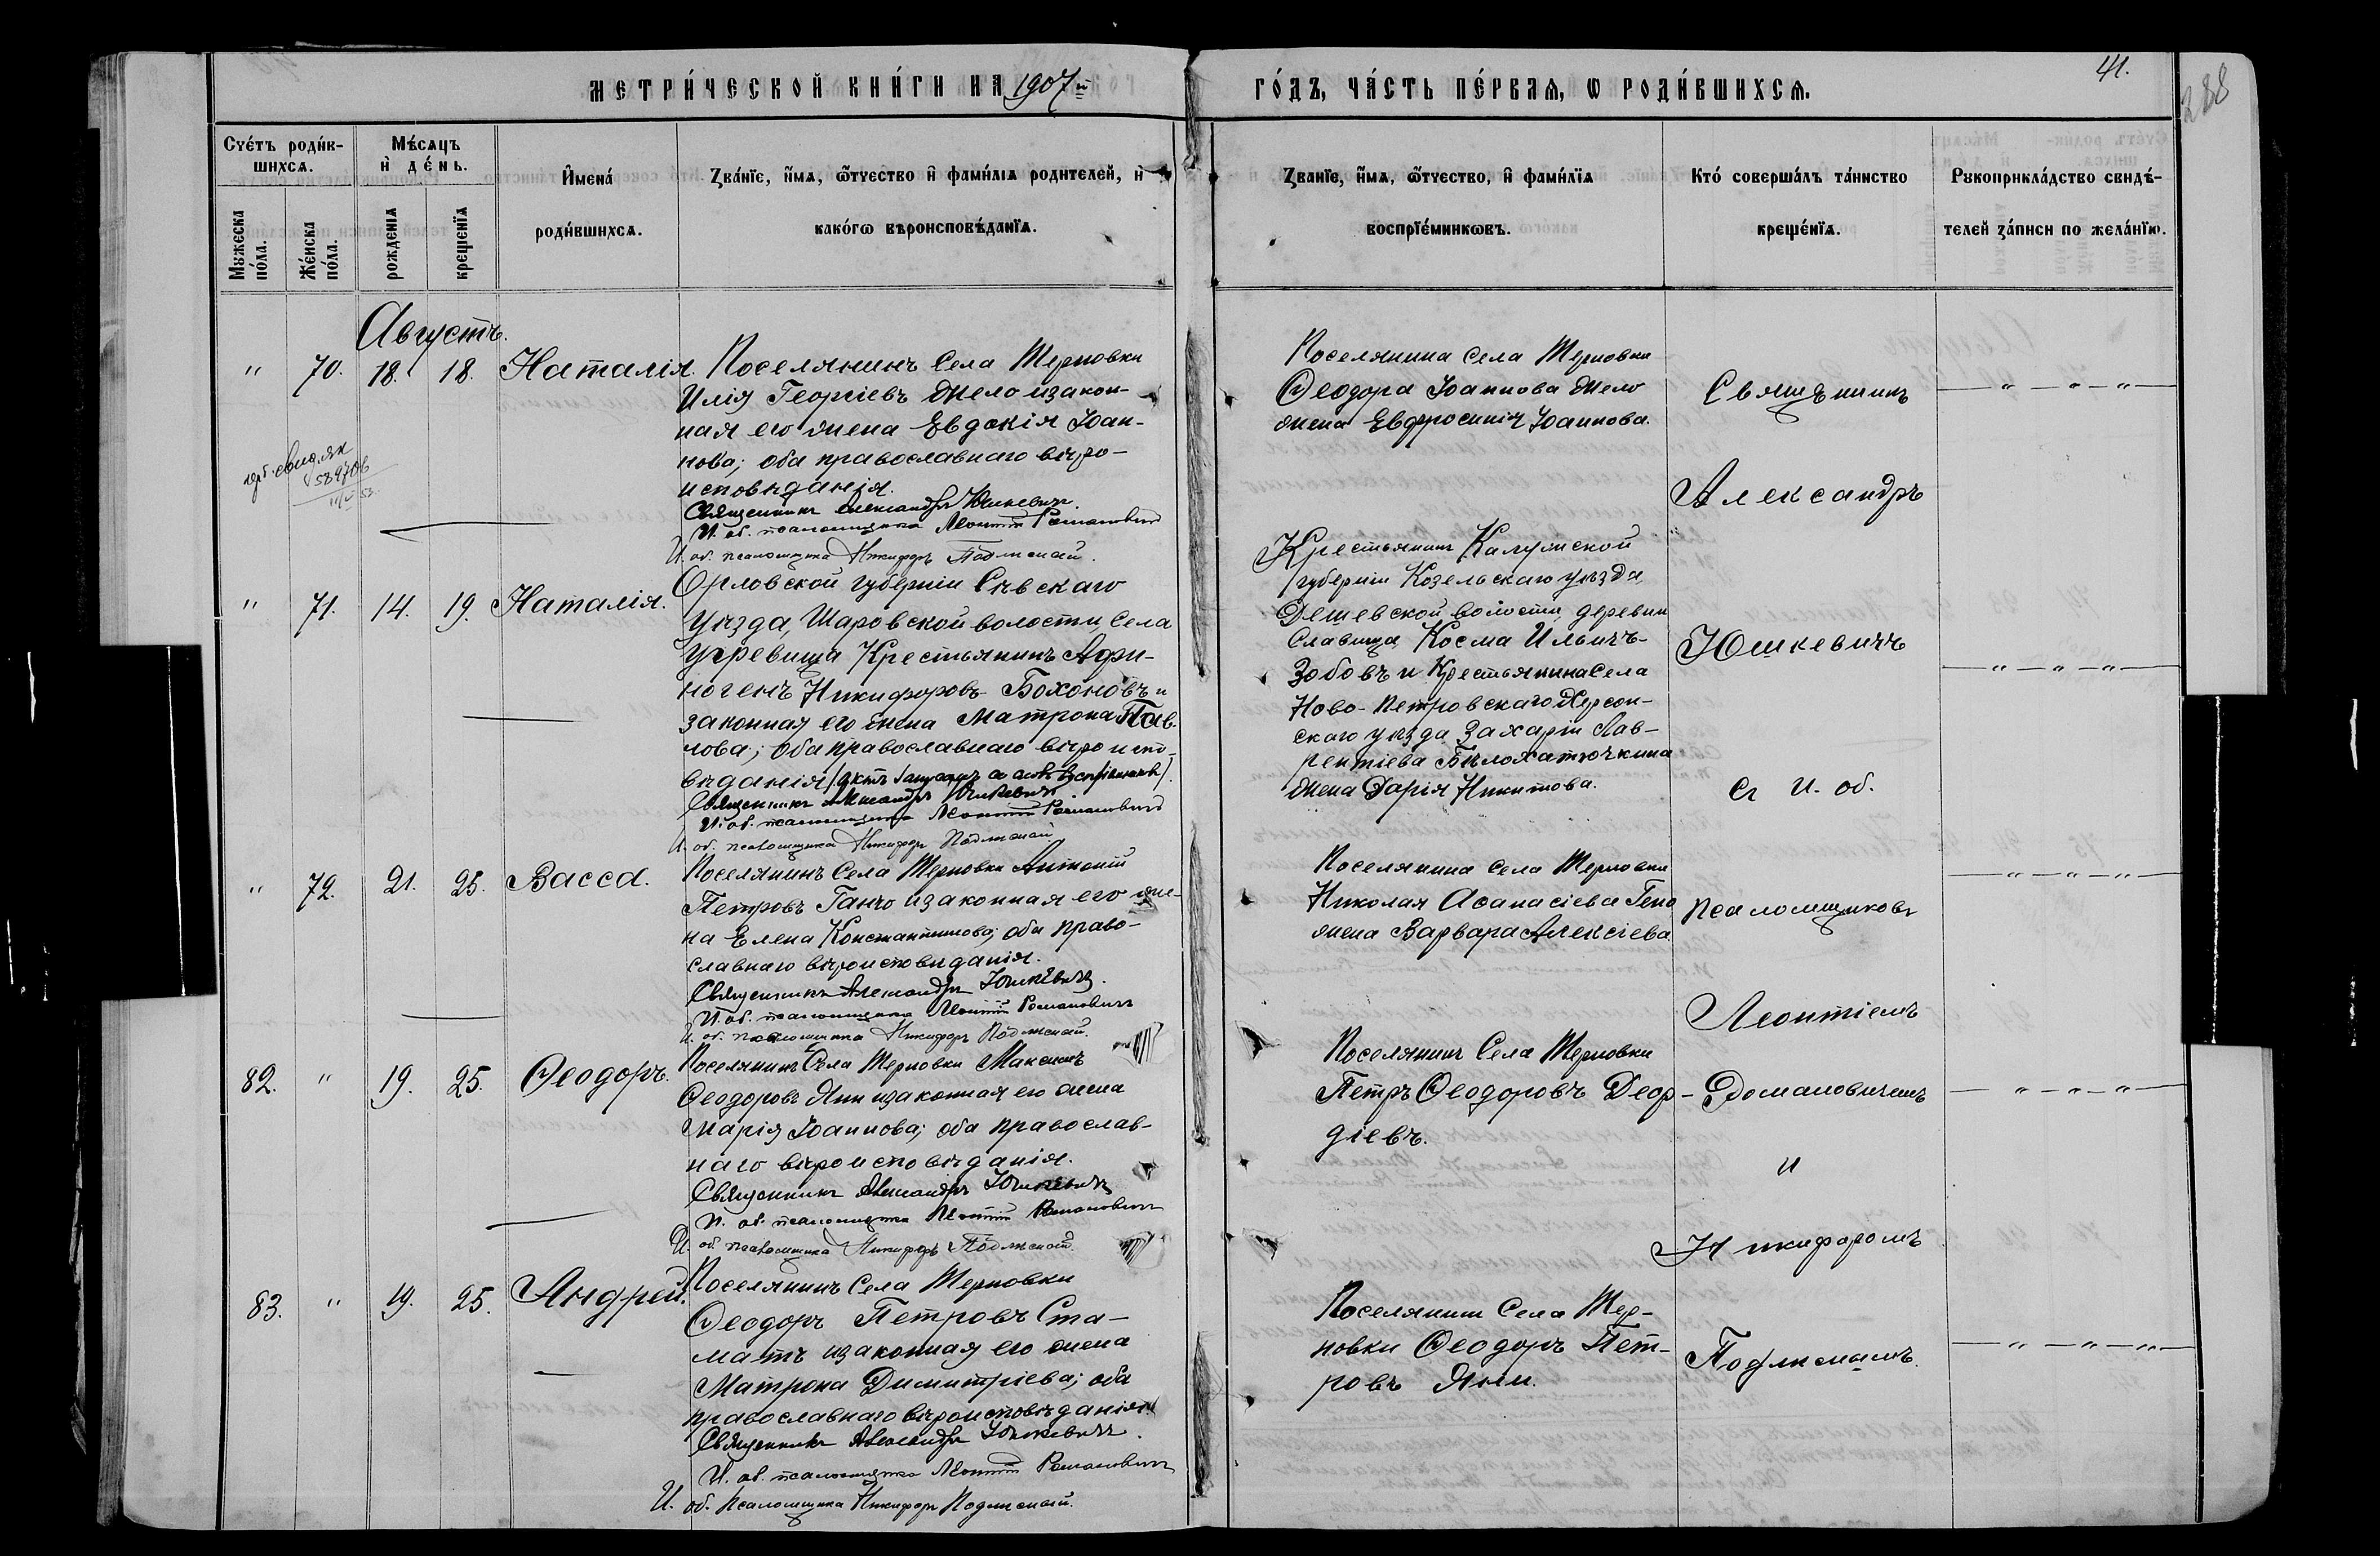 МЕТРИ́ЧЕСКОЙ КНИ́ГИ НА 1907й
ГО́ДЪ, ЧА́СТЬ ПЕ́РВАѦ, Ѡ РОДИ́ВШИХСѦ.
41.
288
Сче́тъ роди́в-
шихсѧ.
Мѣ́сѧцъ
и҆ де́нь.
И҆мена́
роди́вшихсѧ.
Зва́нїе, и҆́мѧ, ѻ҆́тчество и҆ фами́лїѧ родителей, и҆
како́гѡ вѣроисповѣ́данїѧ.
Зва́нїе, и҆́мѧ, ѻ҆́тчество, и҆ фами́лїѧ
воспрїе́мникѡвъ.
Кто́ соверша́лъ та́инство
креще́нїѧ.
Рꙋкоприкла́дство свидѣ́-
телей за́писи по жела́нїю.
Мꙋжеска
по́ла.
Же́нска
по́ла.
рожденїѧ
крещенїѧ
Августъ.
" 70. 18. 18. Наталія.
Поселянинъ Села Терновки
Илія Георгіевъ Жело и закон-
ная его жена Евдокія Іоан-
нова; оба православнаго вѣро-
исповѣданія.
Священникъ Александръ Юшкевичъ.
И. об. псаломщика Леонтій Романовичъ
И. об. псаломщика Никифоръ Подлисный.
Поселянина Села Терновки
Ѳеодора Іоаннова Жело
жена Евфросинія Іоаннова.
Священникъ
— " — " — " —
Александръ
" 71. 14. 19. Наталія.
Орловской губерніи Сѣвскаго
уѣзда, Шаровской волости, Села
Угревища Крестьянинъ Афи-
ногенъ Никифоровъ Бохоновъ и
законная его жена Матрона Пав-
лова; оба православнаго вѣроиспо-
вѣданія
Священникъ Александръ Юшкевичъ
И. об. псаломщика Леонтій Романовичъ
И. об. псаломщика Никифоръ Подлисный
Крестьянинъ Калужской
губерніи Козельскаго уѣзда,
Дешевской волости, деревни
Славища Косма Ильичъ
Зобовъ и Крестьянина Села
Ново-Петровскаго Херсон-
скаго уѣзда Захарія Лав-
рентіева Бѣлохатючкина
жена Дарія Никитова.
Юшкевичъ
— " — " — " —
съ И. об.
" 72. 21. 25. Васса.
Поселянинъ Села Терновки Антоній
Петровъ Ганчо и законная его же-
на Елена Константинова; оба право-
славнаго вѣроисповѣданія.
Священникъ Александръ Юшкевичъ.
И. об. псаломщика Леонтій Романовичъ
И. об. псаломщика Никифоръ Подлисный.
Поселянина Села Терновки
Николая Аѳанасіева Гено
жена Варвара Алексіева
псаломщиковъ
— " — " — " —
Леонтіемъ
82. " 19. 25. Ѳеодоръ.
Поселянинъ Села Терновки Максимъ
Ѳеодоровъ Яни и законная его жена
Марія Іоаннова; оба православ-
наго вѣроисповѣданія.
Священникъ Александръ Юшкевичъ
И. об. псаломщика Леонтій Романовичъ
И. об. псаломщика Никифоръ Подлисный.
Поселянинъ Села Терновки
Петръ Ѳеодоровъ Деор-
діевъ.
Романовичемъ
— " — " — " —
и
Никифоромъ
83. " 19. 25. Андрей.
Поселянинъ Села Терновки
Ѳеодоръ Петровъ Ста-
матъ и законная его жена
Матрона Димитріева; оба
православнаго вѣроисповѣданія.
Священникъ Александръ Юшкевичъ.
И. об. псаломщика Леонтій Романовичъ
И. об. псаломщика Никифоръ Подлисный.
Поселянинъ Села Тер-
новки Ѳеодоръ Пет-
ровъ Яни.
Подлиснымъ.
— " — " — " —